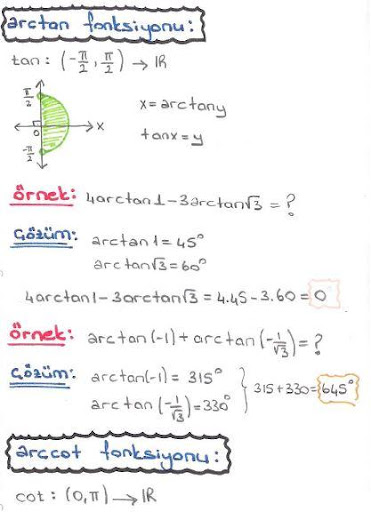 arctan fonksiyonu:
tan: (-π/2, π/2) → IR
π/2
0
x
-π/2
x=arctany
tanx=y
örnek: 4arctan1-3arctan√3 = ?
Çözüm: arctan1=45°
arctan√3=60°
4arctan1-3arctan√3 = 4.45-3.60=0
örnek: arctan(-1)+arctan(-1/√3)=?
Çözüm: arctan(-1)= 315°
arctan(-1/√3)=330°
315+330=645°
arccot fonksiyonu:
cot: (0,π) → IR